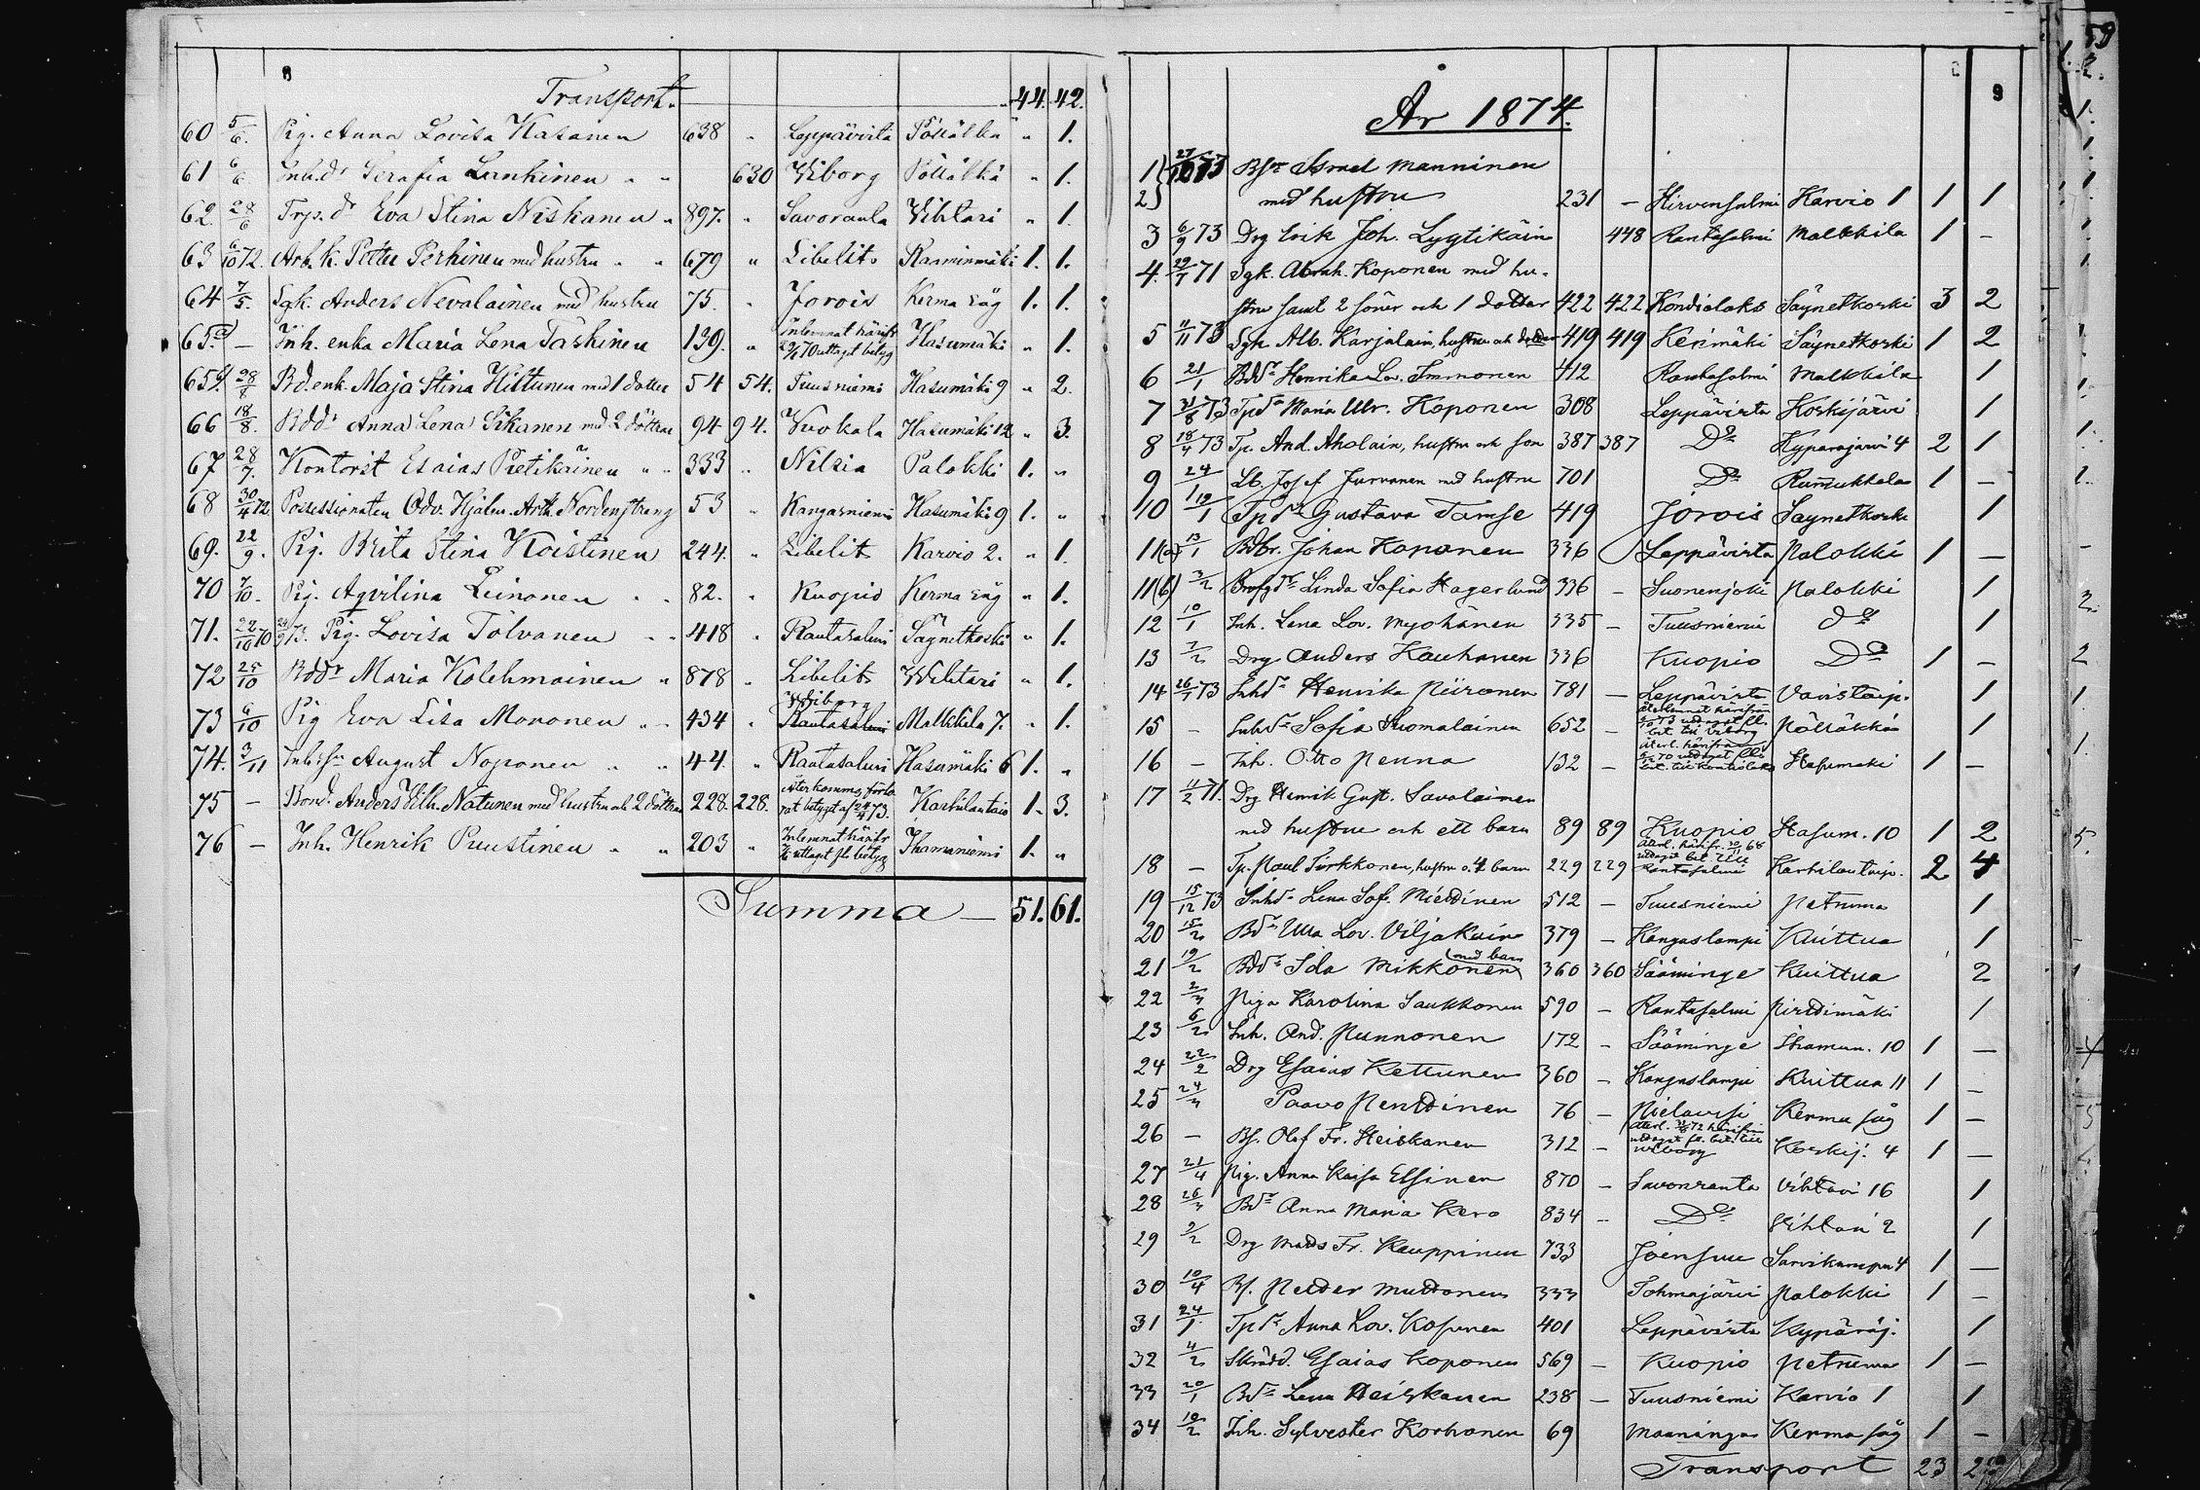 Transport. 44. 42.
60 5/6. Pig. Anna Lovisa Kasanen 638 " Leppävirta Pölläkkä " 1.
61 6/6 Inh.dr Serafia Lankinen " " 630 Wiborg Pölläkkä " 1.
62. 28/6 Trp.dr Eva Stina Niskanen " 897. " Savoranta Vihtari " 1
63 6/10 72. Arb.k. Petter Perhinen med hustru " " 679 " Libelits Raaminmäki 1. 1.
64 7/5. Sgk. Anders Nevalainen med hustru 75. " Jorois Kerma såg 1. 1.
65.a) — Inh. enka Maria Lena Taskinen 139. " Inlemnat härifr. 29/6 70 uttaget betyg Hasumäki " 1.
65b. 28/8 Bd.enk. Maja Stina Hiltunen med 1 dotter 54 54. Tuusniemi Hasumäki 9 " 2.
66 18/8. Bddr Anna Lena Sikanen med 2 döttrar 94 94. Vuokala Hasumäki 12 " 3.
67 28/7. Kontorist Esaias Pietikäinen " " 333 " Nilsia Palokki 1. "
68 30/4 72. Possessionaten Odv. Hjalm. Arth. Nordenstreng 53 " Kangasniemi Hasumäki 9 1. "
69. 22/9. Pig. Brita Stina Koistinen 244. " Libelits Karvio 2. " 1.
70 7/10. Pig. Aqvilina Leinonen " " 82. " Kuopio Kerma såg " 1.
71. 22/10 70 Pig. Lovisa Tolvanen " " 418 " Rautasalmi Säynetkoski " 1.
72 25/10 Bddr Maria Kolehmainen " 878 " Libelits Wihtari " 1.
Wiborg
73 6/10 Pig Eva Lisa Mononen " " 434 " Rantasalmi Malkkila 7. " 1.
74. 3/11 Inh.sn August Noponen " " 44. " Rantasalmi Hasumäki 6 1. "
75 — Bond. Anders Wilh. Natunen med hustru och 2 döttrar 228. 228. återkomna, förlorat betyget af 24/4 73. Karhilantaip 1. 3.
76 — Inh. Henrik Puustinen " " 203 " Inlemnat härifr. uttaget fl. betyg Ihamaniemi 1. "
Summa — 51. 61.
År 1874.
1 } 27/10 73 Bsn Israel Manninen
2 } med hustru 231 — Hirvensalmi Karvio 1 1 1
3 6/9 73 Drg Erik Joh. Lyytikäin 448 Rantasalmi Malkkila 1 -
4. 29/7 71 Sgk. Abrah. Koponen med hu-
stru samt 2 söner och 1 dotter 422 422 Kondiolaks Säynetkoski 3 2
5 11/11 73 Sgk. Alb. Karjalain, hustru och dotter 419 419 Kerimäki Säynetkoski 1 2
6 21/1 Bddr Henrika Lov. Immonen 412 Rantasalmi Malkkila 1
7 31/8 73 Tpdr Maria Ulr. Koponen 308 Leppävirta Koskijärvi 1
8 18/4 73 Tp. And. Aholain, hustru och son 387 387 Do Kyparajärvi 4 2 1
9 24/1 Lb. Josef Jurvanen med hustru 701 Do Rummukkala 1 —
10 19/1 Tpdr Gustava Tamse 419 Jorois Säynetkoski 1
11(a) 13/1 Bdbr. Johan Koponen 336 Leppävirta Palokki 1 —
11(b) 3/2 Linda Sofia Hagerlund 336 — Suonenjoki Palokki 1
12 10/1 Inh. Lena Lov. Myöhänen 335 — Tuusniemi do 1
13 7/2 Drg Anders Kauhanen 336 Kuopio Do 1 —
14 26/7 73 Inhdr Henrika Piironen 781 — Leppävirta Varistaip. 1
15 - Inhdr Sofia Suomalainen 652 — Återlemnat härifrån 73 uttaget fl. bet. till Viborg Pölläkkä 1
16 — Inh. Otto Penna 132 — återl. härifrån 70 uttaget flb. bet. till Kontiolaks Hasumaki 1 —
17 11/2 71. Drg Henrik Gust. Savolainen
med hustru och ett barn 89 89 Kuopio Hasum. 10 1 2
18 — Tp. Paul Tirkkonen, hustru o. 4 barn 229 229 återl. härifr. 20/11 68 uttaget bet. till Rantasalmi Karhilantaip. 2 4
19 15/12 73 Inhdr Lena Sof. Miettinen 512 — Tuusniemi Petruma 1
20 15/2 Bdr Ulla Lov. Viljakain 379 — Kangaslampi Kuittua 1
21 19/2 Bddr Ida Mikkonen (med barn) 360 360 Sääminge Kuittua 2
22 2/3 Piga Karolina Laukkonen 590 — Rantasalmi Pirttimäki 1
23 6/2 Inh. And. Punnonen 172 — Sääminge Ihaman. 10 1 —
24 22/2 Drg Esaias Kettunen 360 — Kangaslampi Kuittua 11 1 —
25 24/3 Paavo Penttinen 76 — Pielavesi Kerma såg 1 —
26 — Bs. Olof Fr. Heiskanen 312 — återl. 72 härifrån uttaget fl. bet. till Wiborg Koskij. 4 1 —
27 21/4 Pig. Anna Kaisa Elsinen 870 — Savonranta Vihtari 16 1
28 26/3 Bdr Anna Maria Kero 834 — Do Vihtari 2 1
29 2/2 Drg Mats Fr. Kauppinen 733 Joensuu Sarvikumpu 4 1 —
30 10/4 Bs. Petter Muttonen 333 Tohmajärvi Palokki 1 —
31 24/1 Tpdr Anna Lov. Koponen 401 Leppävirta Kypäräj. 1
32 4/2 Skrädd. Esaias Koponen 569 — Kuopio Petruma 1 —
33 20/1 Bdr Lena Heiskanen 238 — Tuusniemi Karvio 1 1
34 10/2 Inh. Sylvester Korhonen 69 Maaninga Kerma såg 1 —
Transport 23